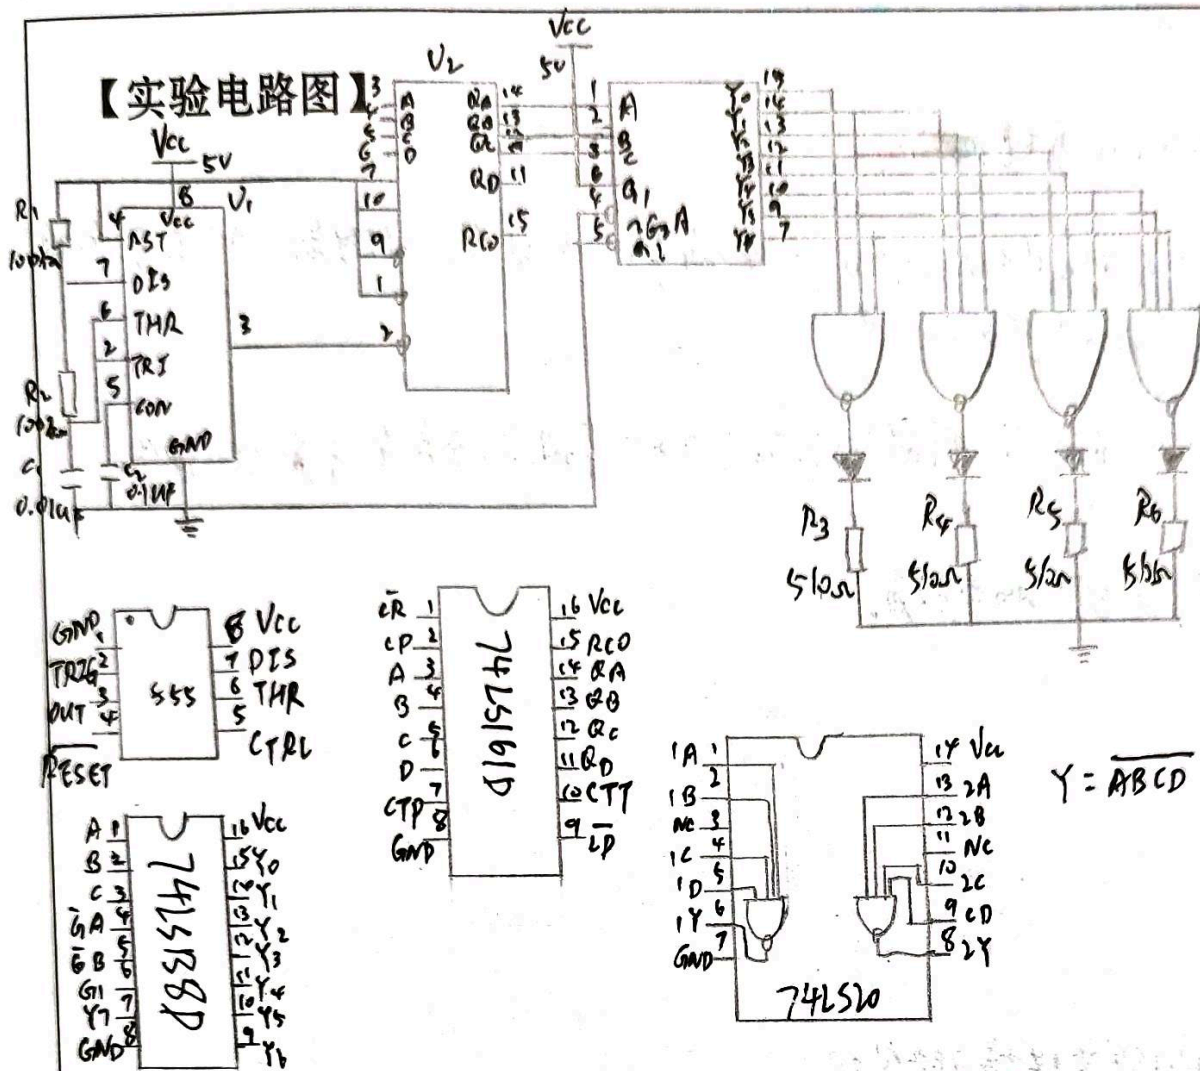 【实验电路图】
Vcc
5V
R1
100kΩ
R2
C1
0.01uF
C2
0.1uF
U1
8
Vcc
4 RST
7 DIS
6 THR
2 TRI
5 CON
GND
3
U2
3 A
4 B
5 C
6 D
7
10
9
1
2
QA 14
QB 13
QC 12
QD 11
RCO 15
Vcc
5V
1 A
2 B
3 C
6 G1
4
5
Y0 15
Y1 14
Y2 13
Y3 12
Y4 11
Y5 10
9
7
R3
510Ω
R4
510Ω
R5
510Ω
R6
510Ω
GND 1
TRIG 2
OUT 3
4
RESET
555
8 Vcc
7 DIS
6 THR
5 CTRL
C̅R̅ 1
CP 2
A 3
B 4
C 5
D 6
CTP 7
GND 8
74LS161D
16 Vcc
15 RCO
14 QA
13 QB
12 QC
11 QD
10 CTT
9 L̅D̅
A 1
B 2
C 3
G̅A 4
G̅B 5
G1 6
Y7 7
GND 8
74LS138D
16 Vcc
15 Y0
14 Y1
13 Y2
12 Y3
11 Y4
10 Y5
9 Y6
1A 1
1B 2
NC 3
1C 4
1D 5
1Y 6
GND 7
74LS20
14 Vcc
13 2A
12 2B
11 NC
10 2C
9 2D
8 2Y
Y = A̅B̅C̅D̅